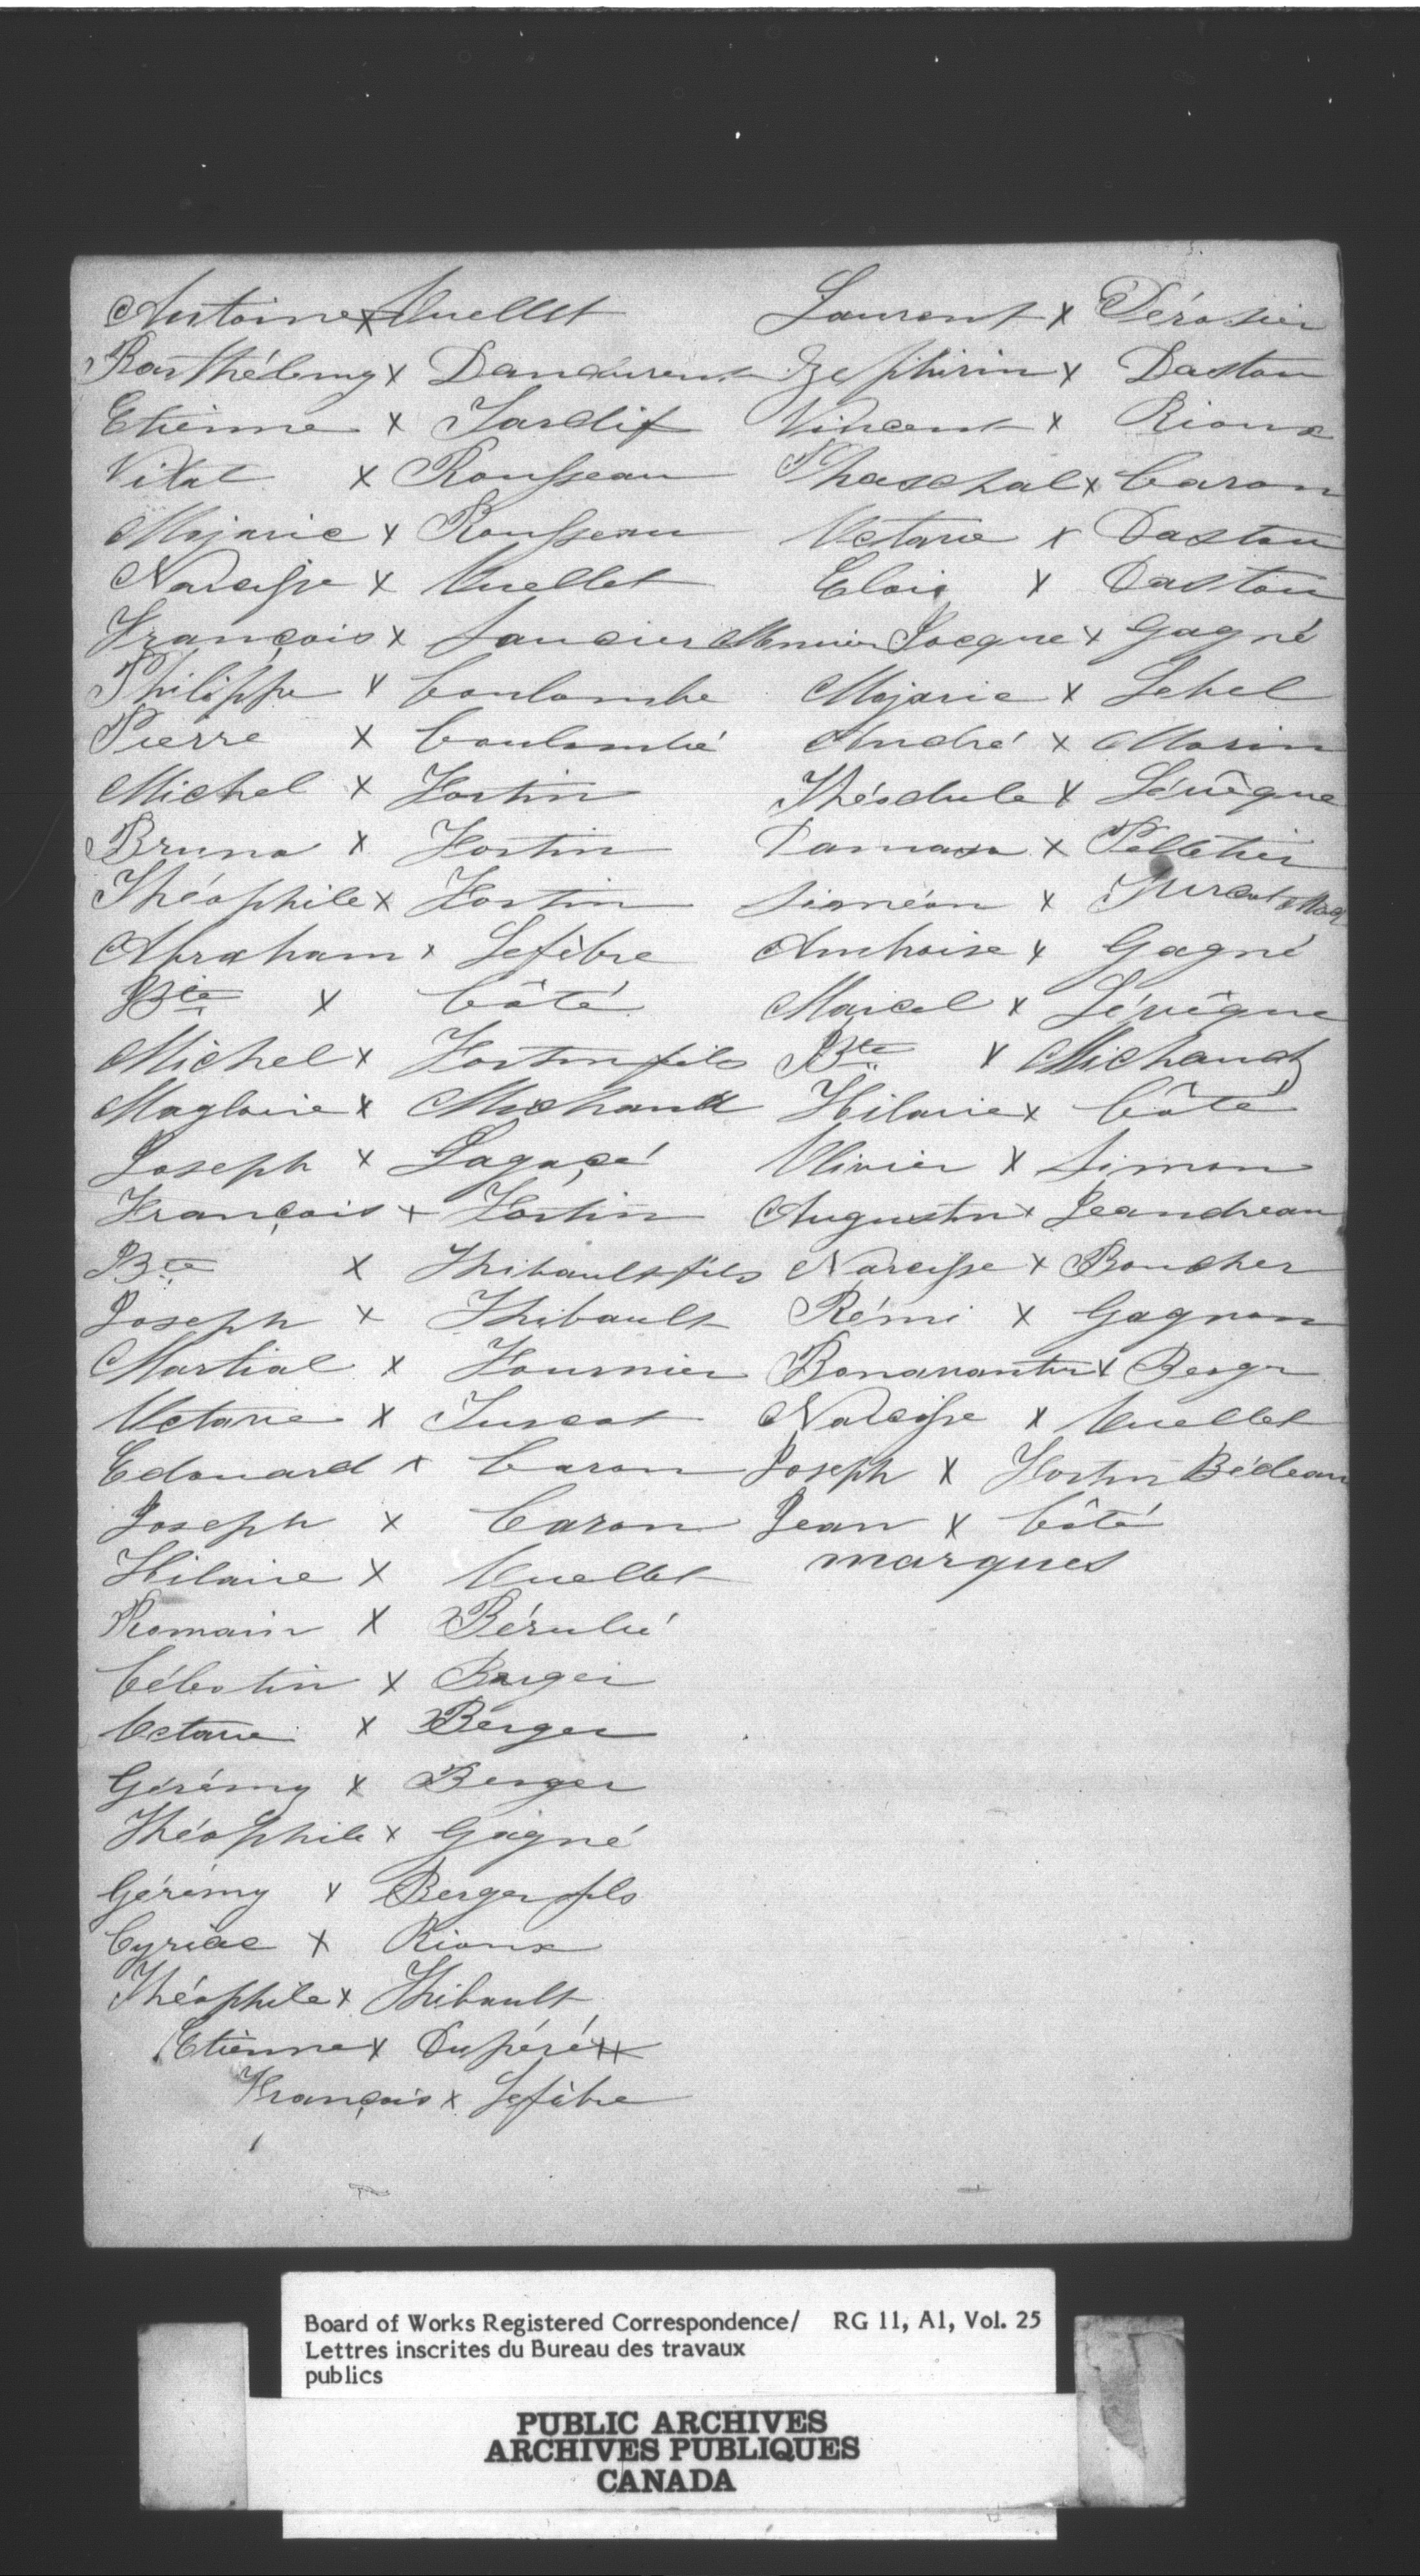 Antoine x Ouellet
Barthélemy x Dandurent
Etienne x Tardif
Vital x Rousseau
Mojarie x Rousseau
Narcisse x Ouellet
François x Saucier
Philippe x Coulombe
Pierre x Coulombe
Michel x Fortin
Bruno x Fortin
Théophile x Fortin
Abraham x Lefèbre
Bte x Côté
Michel x Fortin fils
Magloire x Michaud
Joseph x Lagacé
François x Fortin
Bte x Thibault fils
Joseph x Thibault
Martial x Fournier
Octave x Turcot
Edouard x Caron
Joseph x Caron
Hilaire x Ouellet
Romain x Bérubé
Célestin x Berger
Octave x Berger
Gérémy x Berger
Théophile x Gagné
Gérémy x Berger fils
Cyriac x Rioux
Théophile x Thibault
Etienne x Dupéré xx
François x Lefèbre
Laurent x Pérosier
Zephirin x Dastou
Vincent x Rioux
Phaschal x Caron
Octave x Dastou
Elois x Dastou
Jacque x Gagné
Mojarie x Lebel
André x Morin
Théodule x Lévêque
Damase x Pelletier
Siméon x Turcot
Ambroise x Gagné
Marcel x Lévêque
Bte x Michaud
Hilarie x Côté
Olivier x Simon
Augustin x Jeandreau
Narcisse x Boucher
Rémi x Gagnon
Bonavantur x Berger
Narcisse x Ouellet
Joseph x Fortin Bédeau
Jean x Côté
marques
Board of Works Registered Correspondence/ RG 11, A1, Vol. 25
Lettres inscrites du Bureau des travaux
publics
PUBLIC ARCHIVES
ARCHIVES PUBLIQUES
CANADA